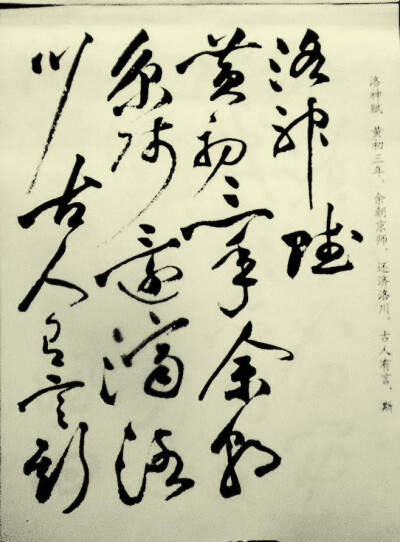 洛神赋 黄初三年，余朝京师，还济洛川。古人有言，斯
洛神赋
黄初三年余朝
京师还济洛
川古人有言斯